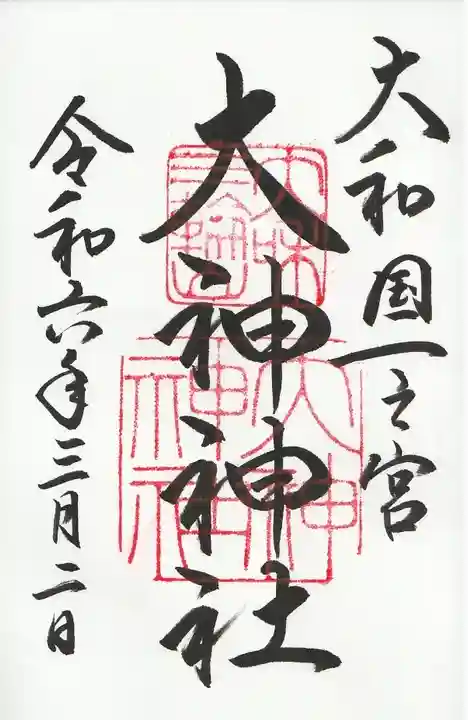 大和国一之宮
大神神社
令和六年三月二日
大神
神社